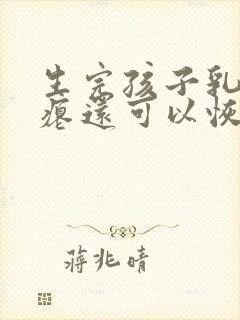 生完孩子乳
瘪还可以恢
蒋兆晴